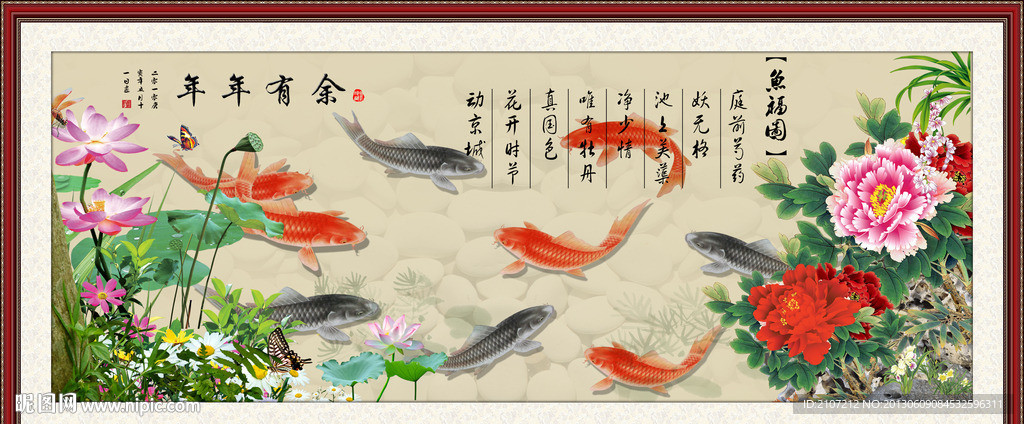 【魚福圖】
庭前芍药
妖无格
池上芙蕖
净少情
唯有牡丹
真国色
花开时节
动京城
年年有余
二零一零庚
寅年五月十
昵图网 www.nipic.com
ID:2107212 NO:20130609084532596311